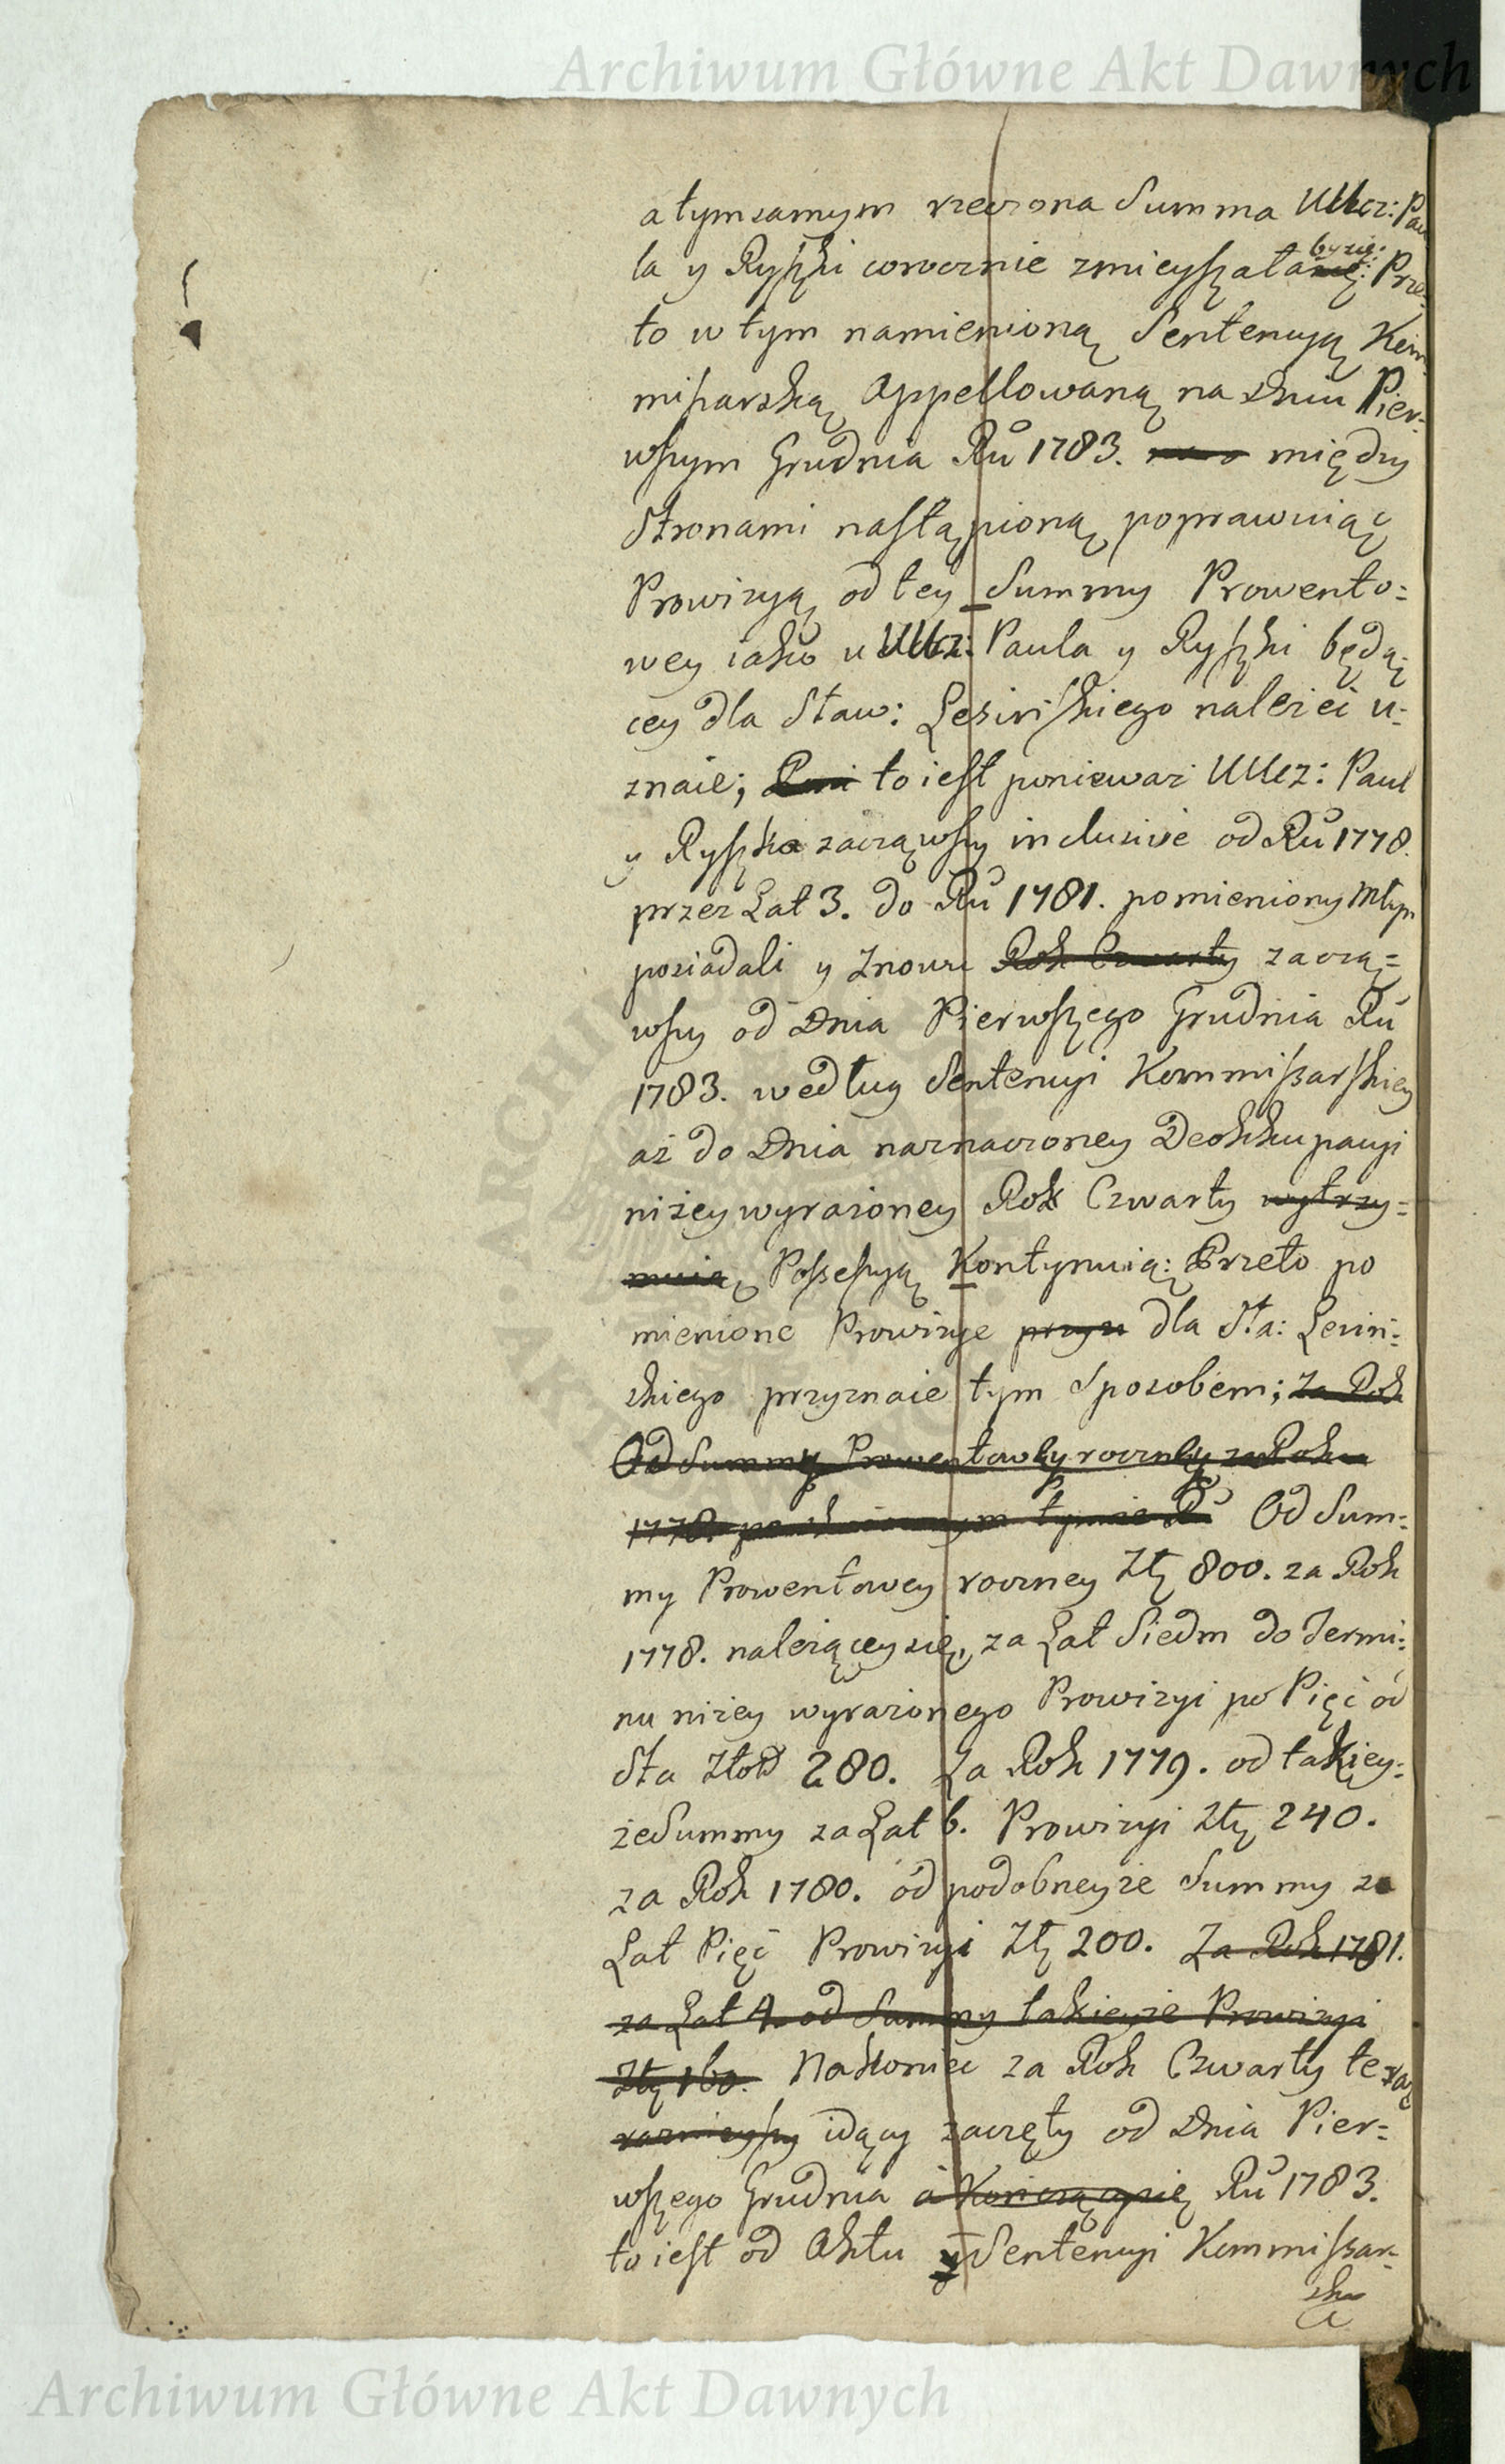 Archiwum Główne Akt Dawnych
a tym samym rzeczona Summa UUcz: Pau
la y Ryszki corocznie zmieyszała by się: Prze
to w tym namienioną Sentencyą Kom
missarską Appellowaną na Dniu Pier=
wszym Grudnia Ru 1783. między
Stronami nastąpioną poprawuiąc
Prowizyą od tey Summy Prowento=
wey iako u UUcz: Paula y Ryszki będą=
cey dla Sław: Lesińskiego należeć u=
znaie; to iest ponieważ UUcz: Paul
y Ryszka zacząwszy inclusive od Ru 1778.
przez Lat 3. do Ru 1781. pomieniony Młyn
posiadali y znowu Rok Czwarty zaczą=
wszy od Dnia Pierwszego Grudnia Ru
1783. według Sentencyi Kommissarskiey
aż do Dnia naznaczoney Deokkupacyi
niżey wyrażoney Rok Czwarty wytrzy=
muią Possessyą Kontynuią: Przeto po
mienione Prowizye przyz dla Sła: Lesiń=
skiego przyznaie tym Sposobem; Za Rok
Od Summy Prowentowey roczney za Roku
1778. Od Sum=
my Prowentowey roczney Złł 800. za Rok
1778. należącey się, za Lat Siedm do Termi=
nu niżey wyrażonego Prowizyi po Pięć od
Sta Złott 280. Za Rok 1779. od takiey=
że Summy za Lat 6. Prowizyi Złł 240.
za Rok 1780. od podobneyże Summy za
Lat Pięć Prowizyi Złł 200. Za Rok 1781.
za Lat 4. od Summy takieyże Prowizyi
Złł 160. Nakoniec za Rok Czwarty teraz
raznieyszy idący zaczęty od Dnia Pier=
wszego Grudnia a Kończący się Ru 1783.
to iest od Aktu y Sentencyi Kommissar=
ska
Archiwum Główne Akt Dawnych